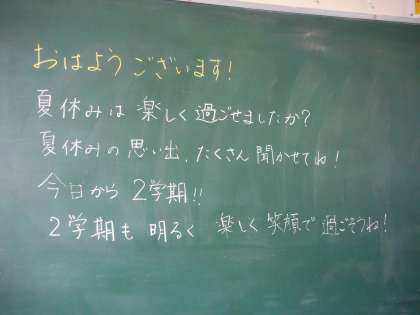 おはようございます!
夏休みは楽しく過ごせましたか?
夏休みの思い出、たくさん聞かせてね!
今日から2学期!!
2学期も明るく楽しく笑顔で過ごそうね!